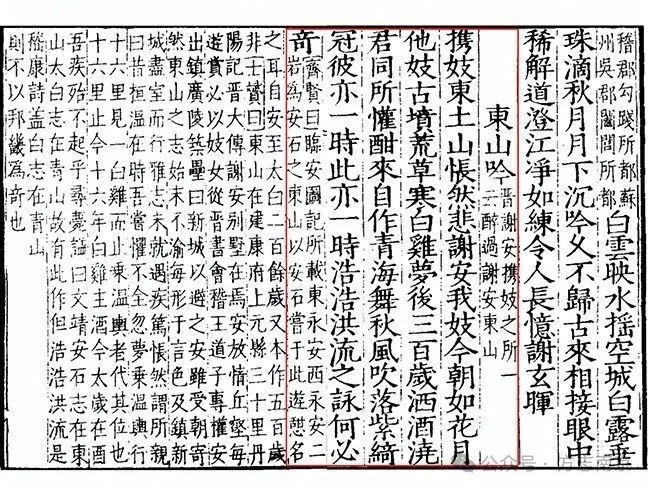 稽郡勾踐所都蘇
州吳郡闔閭所都
白雲映水搖空城白露垂
珠滴秋月月下沉吟久不歸古來相接眼中
稀解道澄江淨如練令人長憶謝玄暉
東山吟
晉謝安携妓之所一
云醉過謝安東山
携妓東土山悵然悲謝安我妓今朝如花月
他妓古墳荒草寒白雞夢後三百歲洒酒澆
君同所懽酣來自作青海舞秋風吹落紫綺
冠彼亦一時此亦一時浩浩洪流之詠何必
奇
齊賢曰臨安圖記所載東永安西永安二
岩爲安石之東山以安石嘗于此遊憇名
之耳自安至太白二百餘歲又本作五百歲
非士贇曰東山在建康府上元縣三十里丹
陽記晉太傅謝安別墅在焉安放情丘壑每
遊賞必以妓女從晉書會稽王道子專權安
出鎮廣陵築壘曰新城以避之安雖受朝寄
然東山之志始末不渝每形于言色及鎮新
城盡室而行雅志未就遇疾篤悵然謂所親
曰昔桓溫在時吾嘗懼不全忽夢乘溫輿行
十六里見一白雞而止乘溫輿者代其位也
十六里止今十六年白雞主酒今太歲在酉
吾疾殆不起乎尋薨謚曰文靖安石志在東
山太白志在青山故有此作但浩浩洪流是
嵇康詩盖白志在青山
則不以邦畿爲奇也
公众号·方志南京